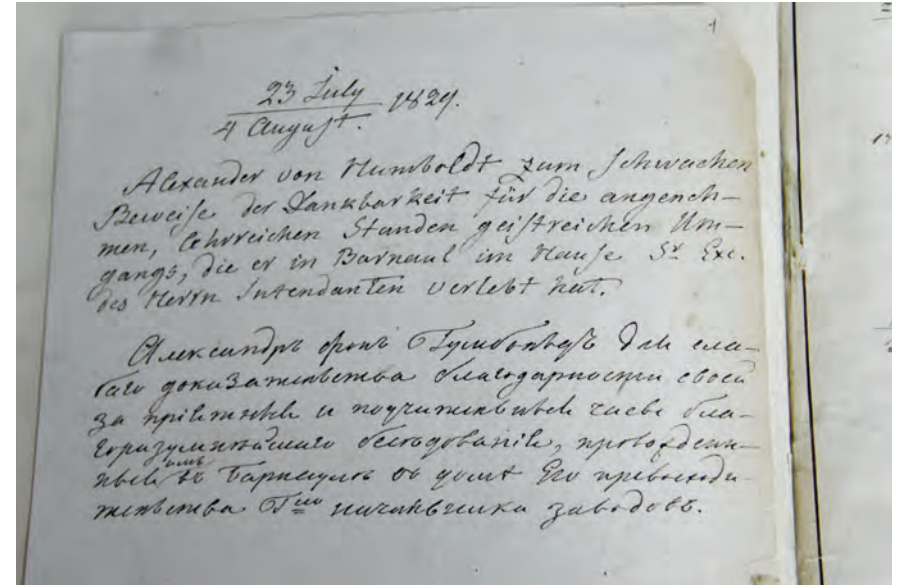 1
23 July
4 August. 1829.
Alexander von Humboldt zum schwachen
Beweise der Dankbarkeit für die angeneh-
men, lehrreichen Stunden geistreichen Um-
gangs, die er in Barnaul im Hause Sr Exc.
des Herrn Intendanten verlebt hat.
Александръ фонъ Гумбольдтъ для сла-
баго доказательства благодарности своей
за пріятныя и поучительныя часы бла-
горазумнѣйшаго бесѣдованія, провожден-
ныя имъ въ Барнаулѣ въ домѣ Его превосходи-
тельства Гна начальника заводовъ.